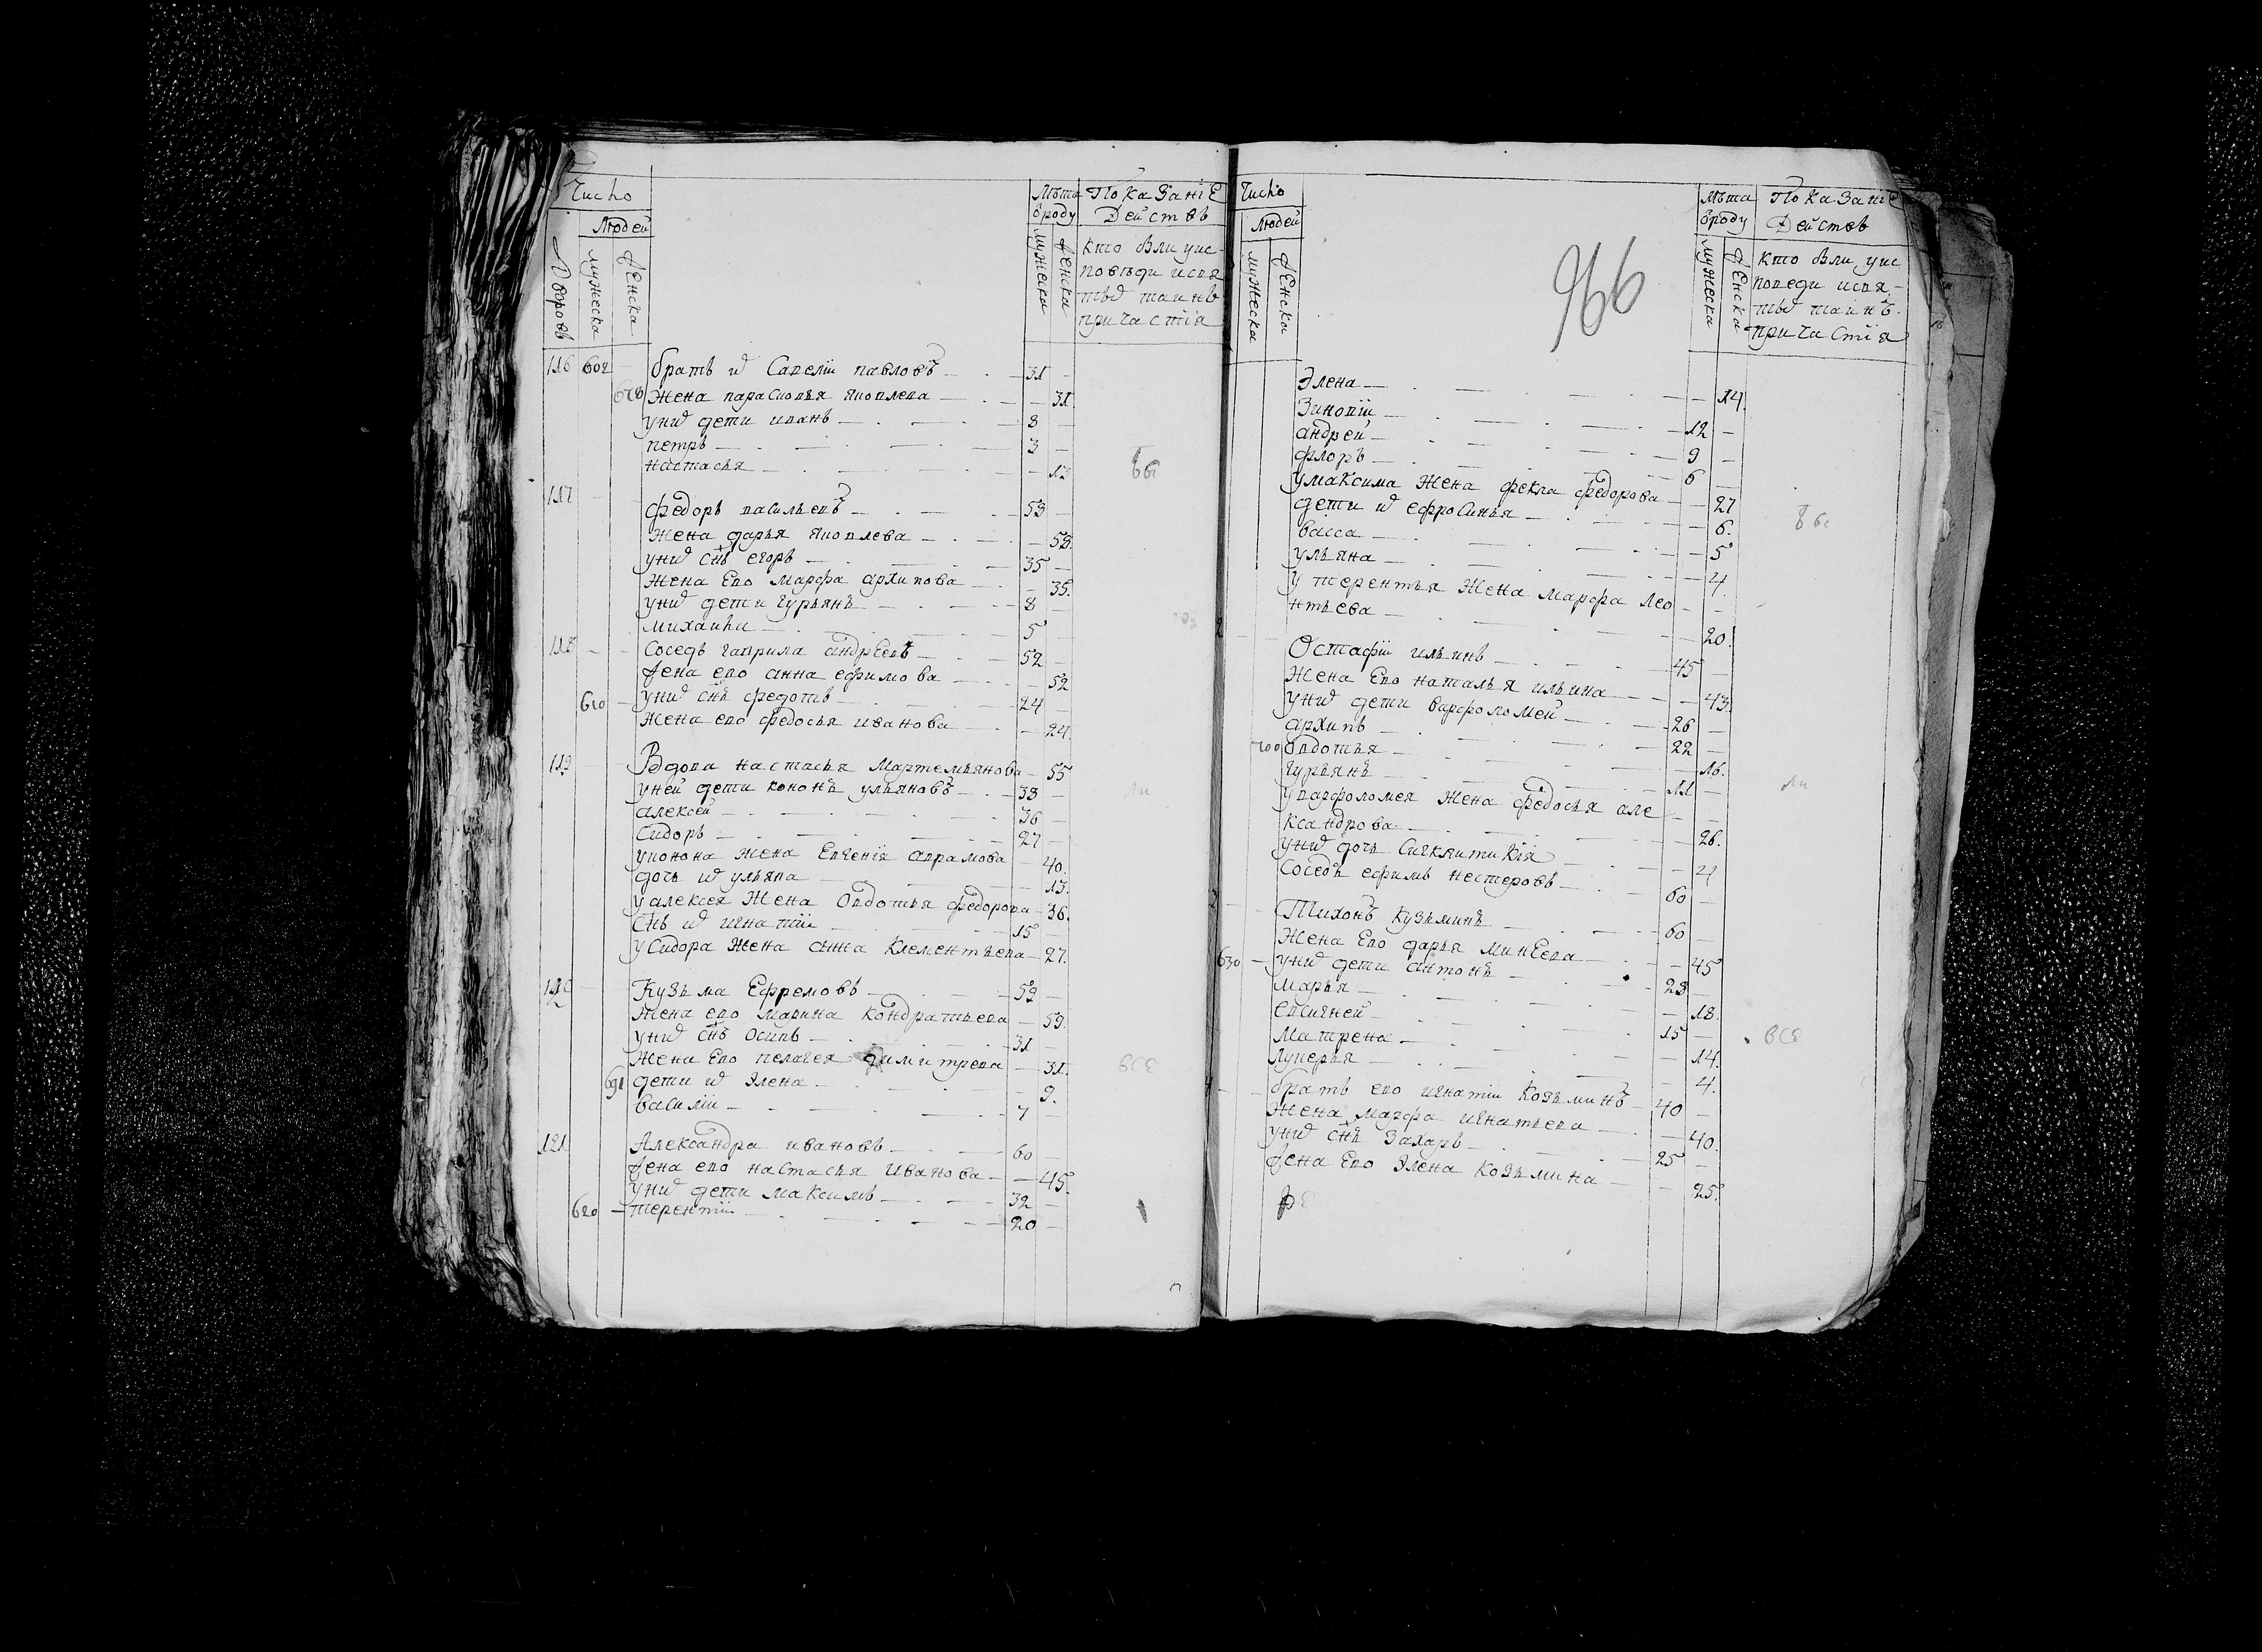 Число
Людей
Дворовъ
мужеска
женска
Лѣта
ѿроду
мужеска
женска
ПоказанїЕ
Действъ
кто были уис
поведи исвя
тыѯ таинъ
причастїя
116 602 братъ иѯ Савелїи павловъ 31
Жена парасковья яковлева 31
униѯ дети иванъ 8
петръ 3
настасья 13
бы
117
федоръ васильевъ 53
Жена дарья яковлева 53
униѯ сн҃ъ егоръ 35
Жена Его марфа архипова 35
униѯ дети гурьянъ 8
михаила 5
118 Соседъ гаврила андреевъ 52
Жена его анна ефимова 52
610 униѯ сн҃ъ федотъ 24
Жена его федосья иванова 24
119 Вдова настасья Мартемьянова 55
уней дети кононъ ульяновъ 38
алексей 36
Сидоръ 27
уконона жена Евгенїя аврамова 40
дочь иѯ ульяна 13
уалексея Жена Овдотья федорова 36
Сн҃ъ иѯ игнатїи 15
уСидора Жена анна Клементьева 27
ли
120 Кузьма Ефремовъ 59
Жена его Мавина Кондратьева 59
униѯ сн҃ъ Осипъ 31
Жена Его пелагея димитрева 31
691 дети иѯ Элена 9
василїи 7
все
121 Александра ивановъ 60
Жена его настасья Иванова 45
униѯ дети максимъ 32
620 терентїи 20
Число
Людей
мужеска
женска
966
Лѣта
ѿроду
мужеска
женска
ПоказанїЕ
Действъ
кто были уис
поведи исвя
тыѯ таинъ
причастїя
Элена 14
Зиновїи 12
андрей 9
флоръ 6
умаксима Жена фекла федорова 27
дети иѯ ефросинья 6
васса 5
ульяна 4
бы
у терентья Жена марфа лео
нтьева 20
Остафїи ильинъ 45
Жена Его наталья ильина 43
униѯ дети варфоломей 26
архипъ 22
700 Овдотья 16
гурьянъ 11
уварфоломея Жена федосья але
ксандрова 26
униѯ дочь Сигклитикїя 4
Соседъ ефимъ нестеровъ 60
ли
Тихонъ Кузьминъ 60
Жена Его дарья минеева 45
630 униѯ дети антонъ 28
марья 18
евсигней 15
Матрена 14
Лукерья 4
все
братъ его игнатїи Козьминъ 40
Жена марфа игнатьева 40
униѯ сн҃ъ Захаръ 25
Жена Его Элена Козьмина 25